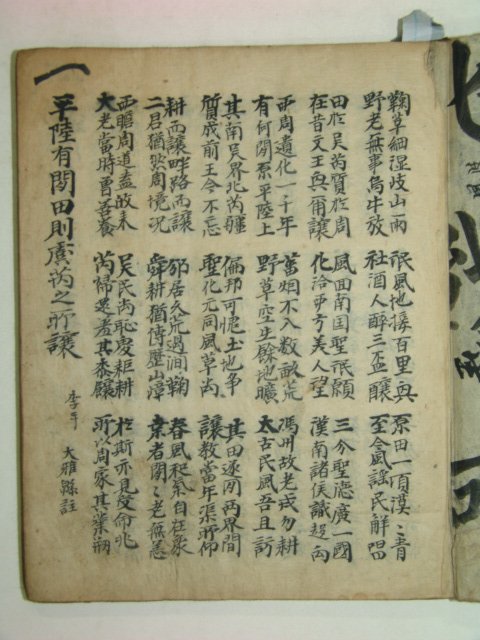 鞠草細湿岐山雨 祇風地接百里與 原田一頃漠〻青
野老無事烏牛放 社酒人醉三盃釀 至今風謠民解唱
田於吳芮質於周 風面南国聖祇願 三分聖德廣一國
在昔文王與甫讓 化洽東方美人望 漢南諸侯識超向
西周遺化一千年 烟不入數畝荒 馮州故老戎勿耕
有何閒原平陸上 野草空生餘地曠 太古民風吾且訪
其南吳界北芮疆 偏邦可愧土地爭 其田逐閑両界間
質成前王令不忘 聖化元同風草尚 讓教當年渠所仰
耕而讓畔路而讓 邠居久荒過澗鞠 春風和氣自在
二君猶如周境況 舜耕猶傳歷山漳 棄者閒〻老無恙
西瞻周道盡敀耒 吳民芮恥 耕 於斯亦見受命兆
大老當時曾善養 芮稀足羞其黍釀 所以周家其業刱
一 平陸有閒田則虞芮之所讓 李手 大雅緜註